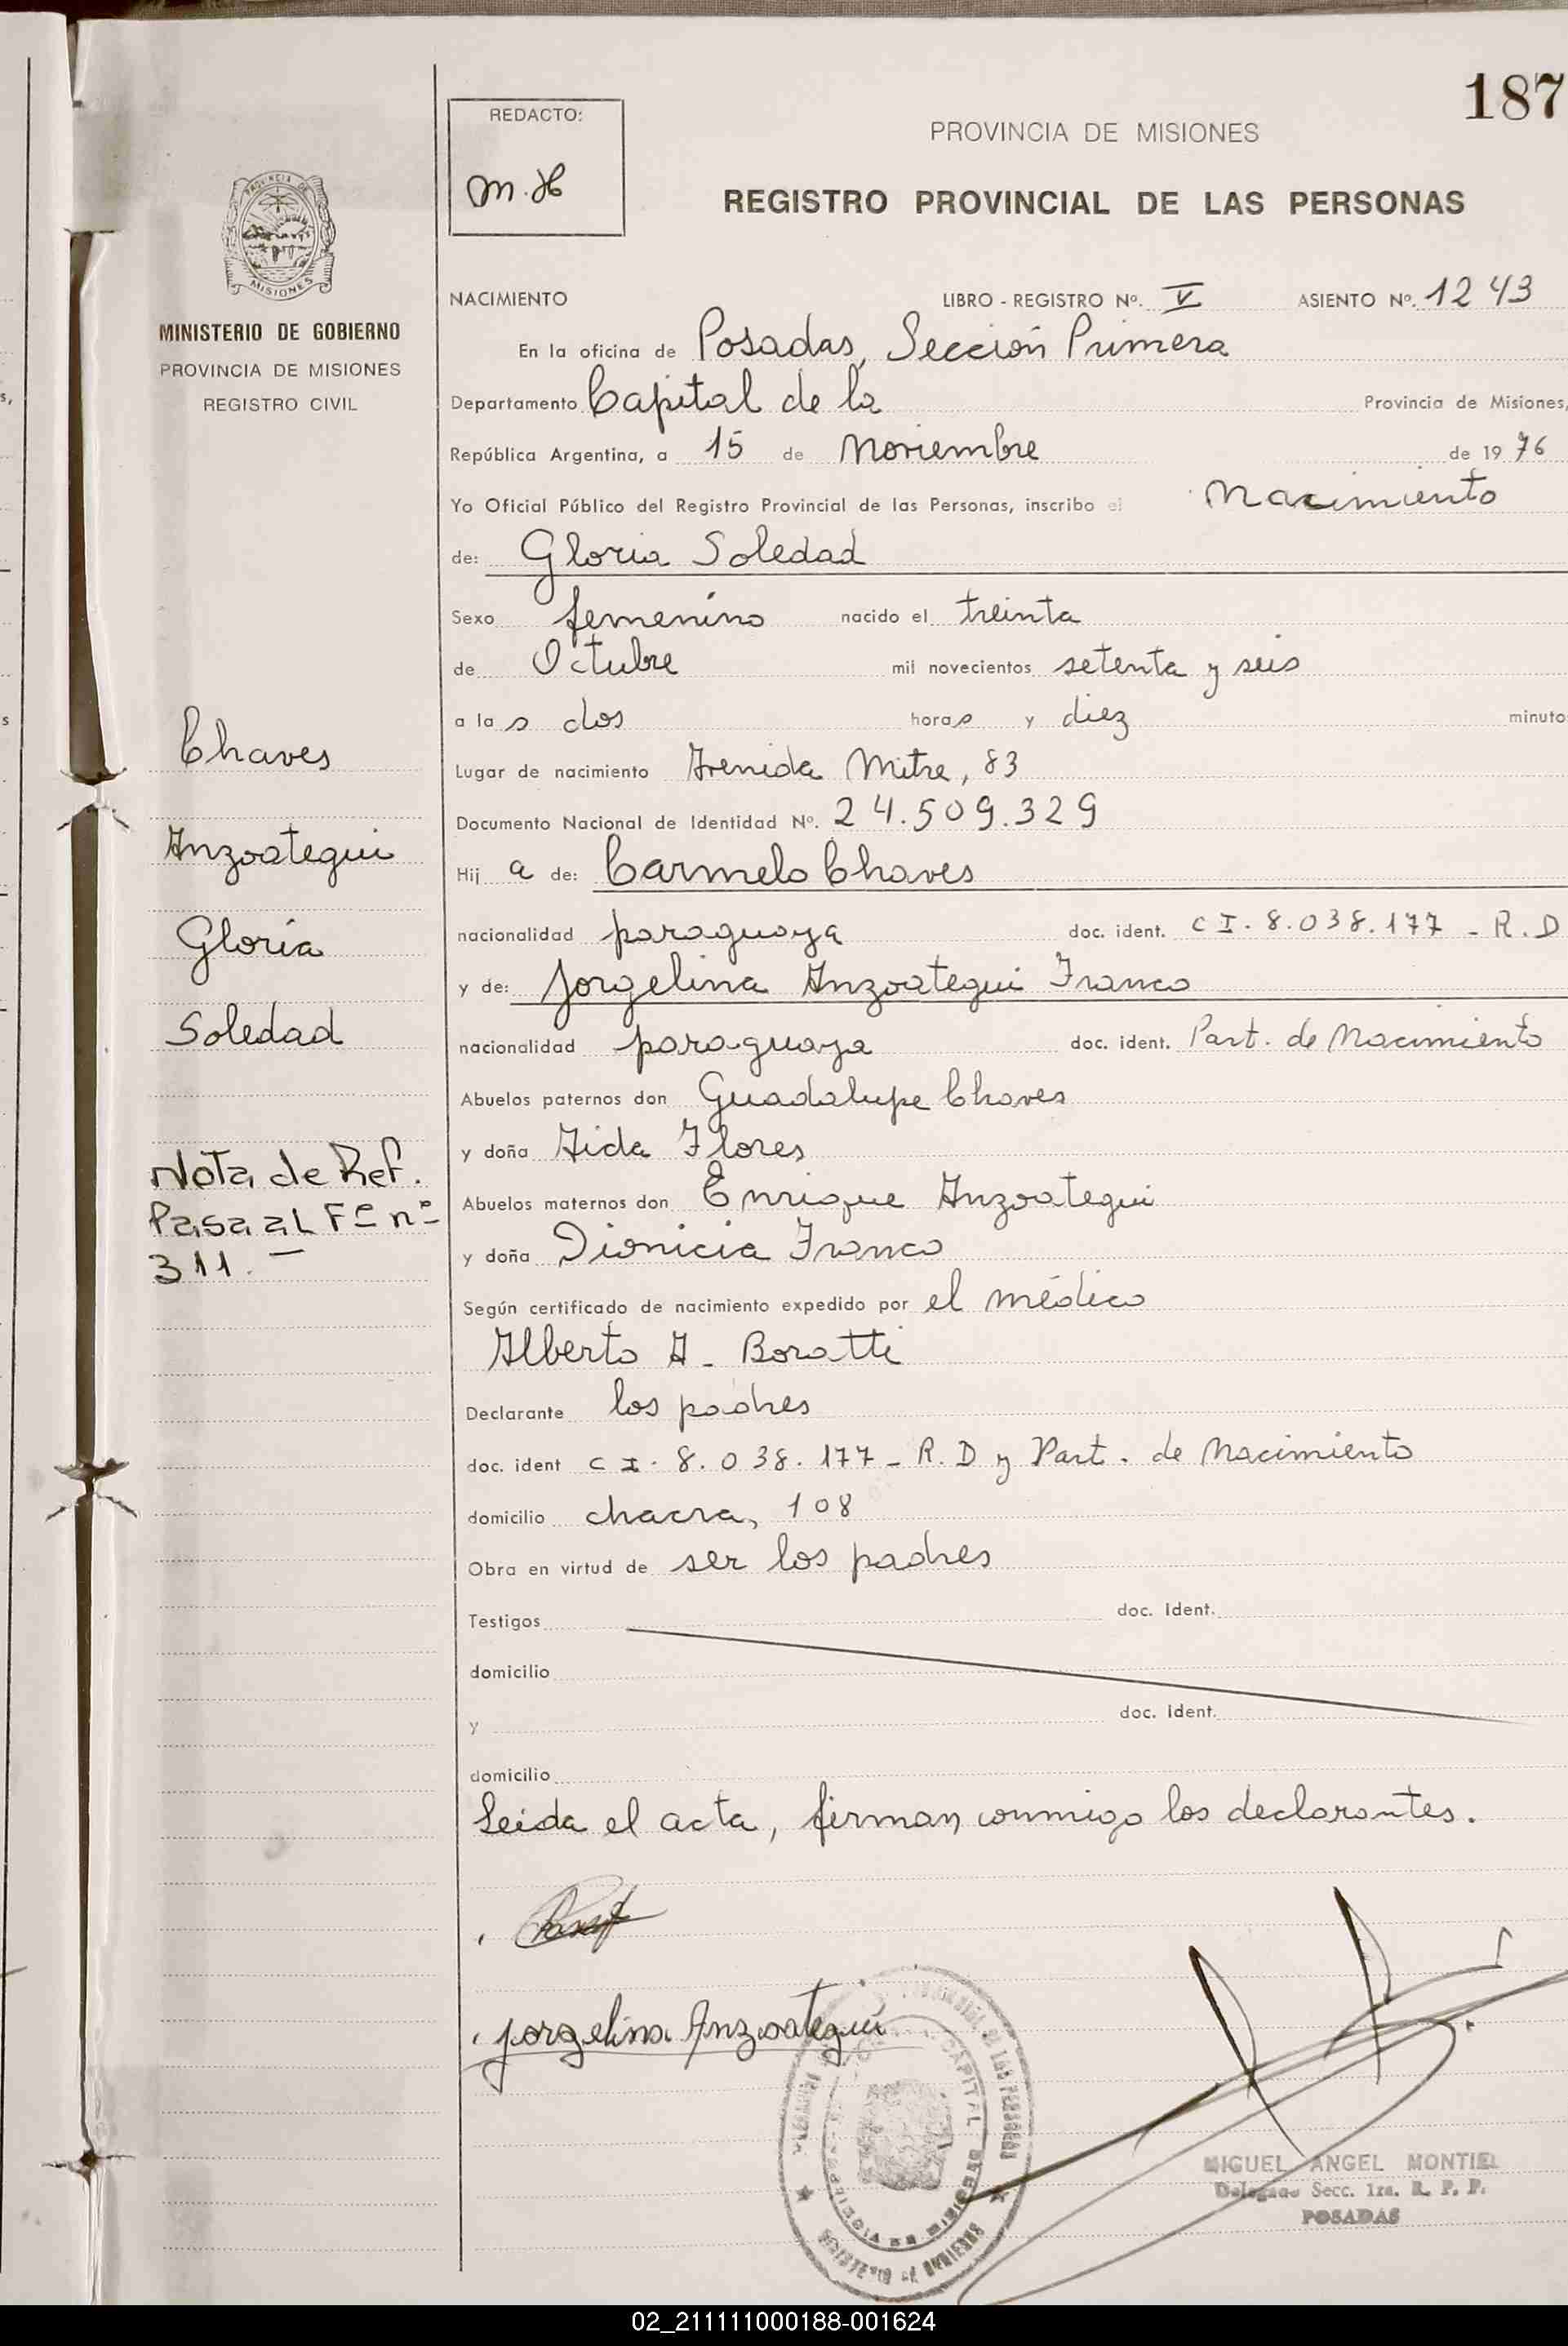 187
REDACTO:
M.H
PROVINCIA DE MISIONES
REGISTRO PROVINCIAL DE LAS PERSONAS
PROVINCIA DE
MISIONES
MINISTERIO DE GOBIERNO
PROVINCIA DE MISIONES
REGISTRO CIVIL
NACIMIENTO LIBRO - REGISTRO Nº. V ASIENTO Nº. 1243
En la oficina de Posadas, Sección Primera
Departamento Capital de la Provincia de Misiones,
República Argentina, a 15 de Noviembre de 1976
Yo Oficial Público del Registro Provincial de las Personas, inscribo el Nacimiento
de: Gloria Soledad
Sexo femenino nacido el treinta
de Octubre mil novecientos setenta y seis
a las dos horas y diez minuto
Lugar de nacimiento Avenida Mitre, 83
Documento Nacional de Identidad Nº. 24.509.329
Hija de: Carmelo Chaves
nacionalidad paraguaya doc. ident. CI. 8.038.177 - R.D
y de: Jorgelina Anzoategui Franco
nacionalidad paraguaya doc. ident. Part. de Nacimiento
Abuelos paternos don Guadalupe Chaves
y doña Aida Flores
Abuelos maternos don Enrique Anzoategui
y doña Dionicia Franco
Según certificado de nacimiento expedido por el médico
Alberto A. Boratti
Declarante los padres
doc. ident CI. 8.038.177 - R.D y Part. de Nacimiento
domicilio chacra, 108
Obra en virtud de ser los padres
Testigos doc. ident.
domicilio
y doc. ident.
domicilio
Leida el acta, firman conmigo los declarantes.
Jorgelina Anzoategui
Chaves
Anzoategui
Gloria
Soledad
Nota de Ref.
Pasa al Fº nº
311.-
MIGUEL ANGEL MONTIEL
Delegado Secc. 1ra. R. P. P.
POSADAS
02_211111000188-001624